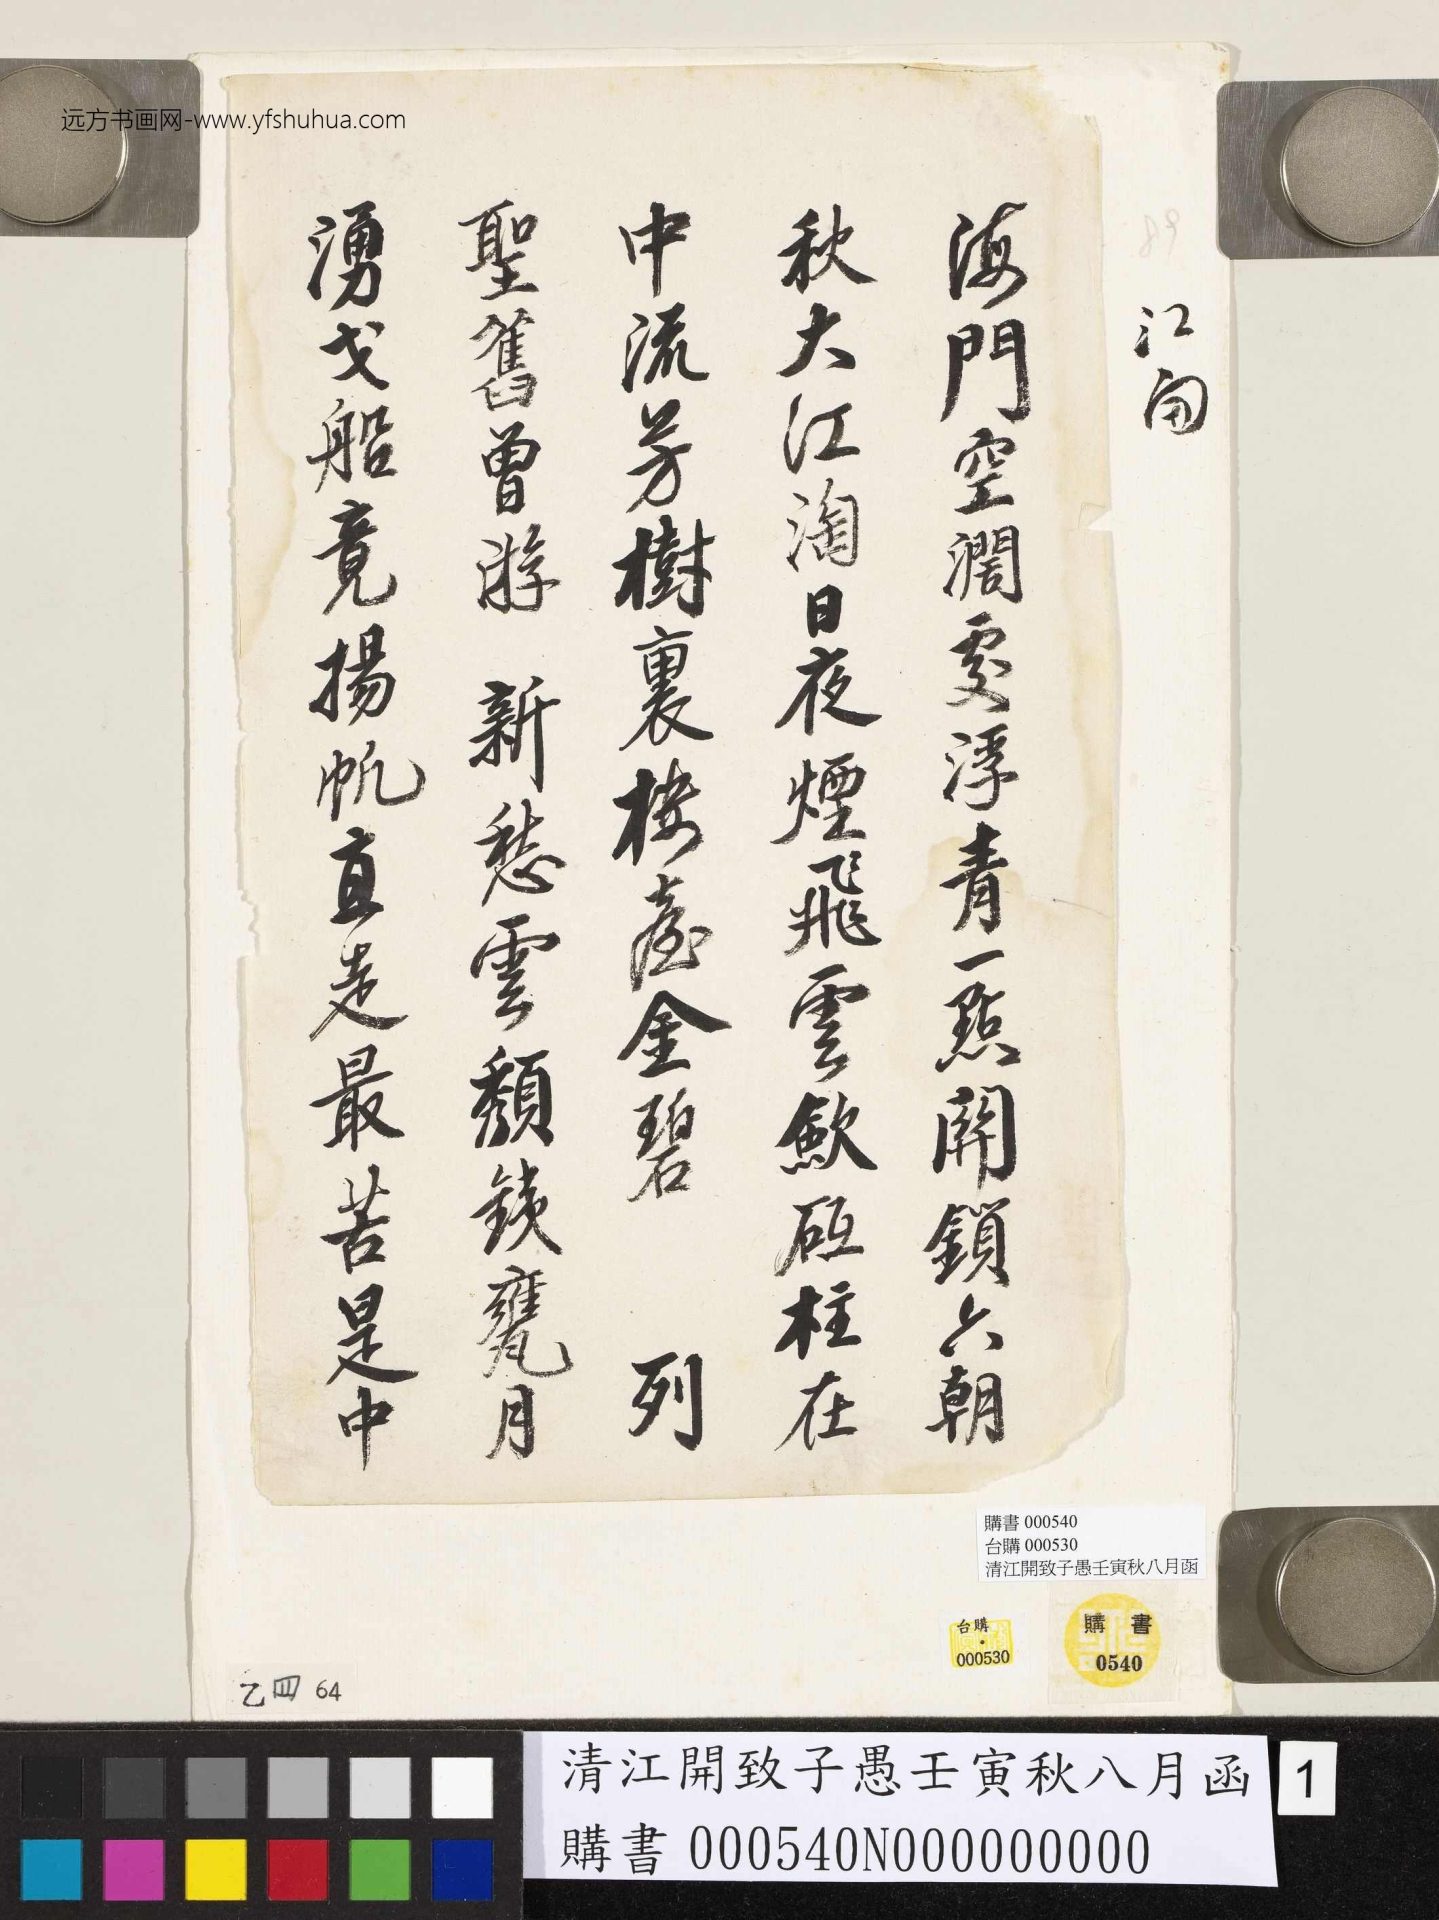 远方书画网-www.yfshuhua.com
江開
海門空濶處浮青一點開鎖六朝
秋大江淘日夜煙飛雲歛砥柱在
中流芳樹裏樓臺金碧 列
聖舊曾游 新愁雲頹鐵甕月
湧戈船竟揚帆直走最苦是中
購書 000540
台購 000530
清江開致子愚壬寅秋八月函
台購
000530
購書
0540
乙四 64
清江開致子愚壬寅秋八月函
購書 000540N000000000
1